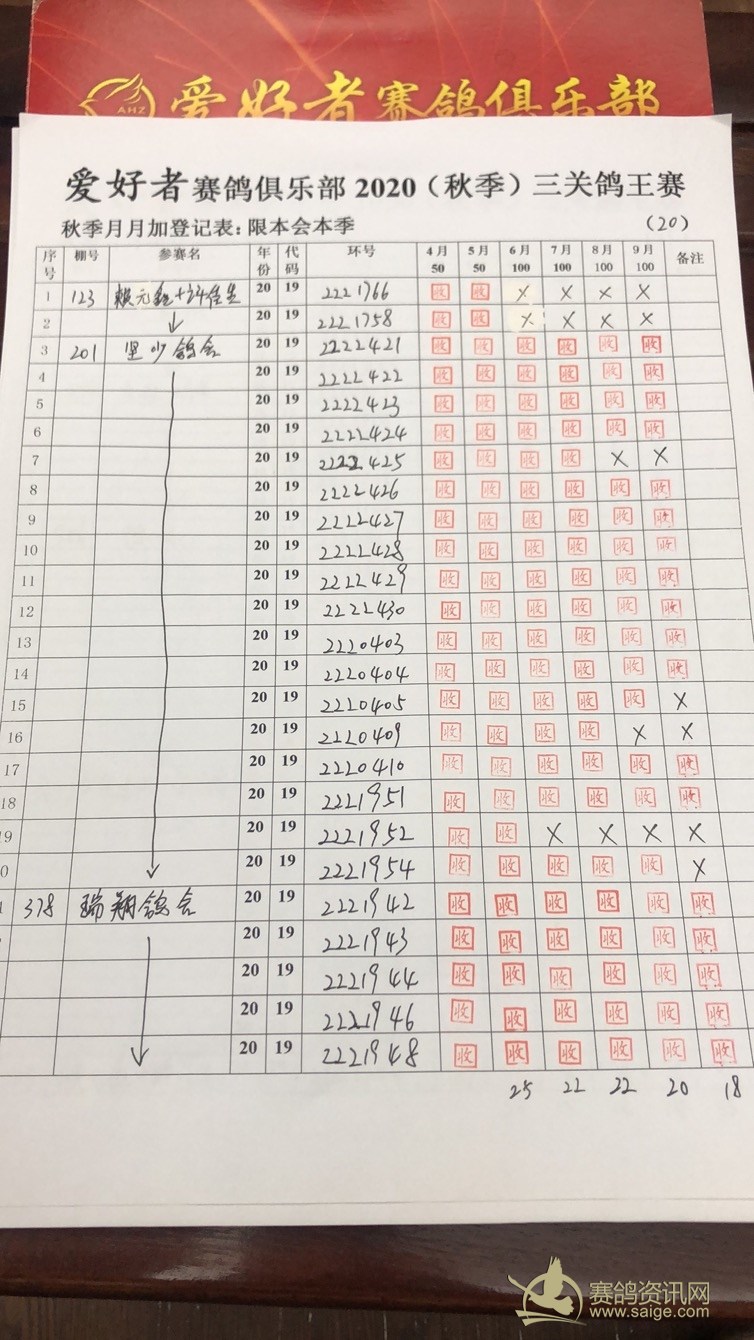 AHZ
爱好者赛鸽俱乐部
爱好者赛鸽俱乐部2020（秋季）三关鸽王赛
秋季月月加登记表：限本会本季 （20）
序号 棚号 参赛名 年份 代码 环号 4月50 5月50 6月100 7月100 8月100 9月100 备注
1 123 20 19 2221766 收 收 X X X X
2 20 19 2221758 收 收 X X X X
3 201 20 19 2222421 收 收 收 收 收 收
4 20 19 2222422 收 收 收 收 收 收
5 20 19 2222423 收 收 收 收 收 收
6 20 19 2222424 收 收 收 收 收 收
7 20 19 2222425 收 收 收 收 X X
8 20 19 2222426 收 收 收 收 收 收
9 20 19 2222427 收 收 收 收 收 收
10 20 19 2222428 收 收 收 收 收 收
11 20 19 2222429 收 收 收 收 收 收
12 20 19 2222430 收 收 收 收 收 收
13 20 19 2220403 收 收 收 收 收 收
14 20 19 2220404 收 收 收 收 收 收
15 20 19 2220405 收 收 收 收 收 X
16 20 19 2220409 收 收 收 收 X X
17 20 19 2220410 收 收 收 收 收 收
18 20 19 2221951 收 收 收 收 收 收
9 20 19 2221952 收 收 X X X X
0 20 19 2221954 收 收 收 收 收 X
378 瑞翔鸽舍 20 19 2221942 收 收 收 收 收 收
20 19 2221943 收 收 收 收 收 收
20 19 2221944 收 收 收 收 收 收
20 19 2221946 收 收 收 收 收 收
20 19 2221948 收 收 收 收 收 收
25 22 22 20 18
赛鸽资讯网
www.saige.com